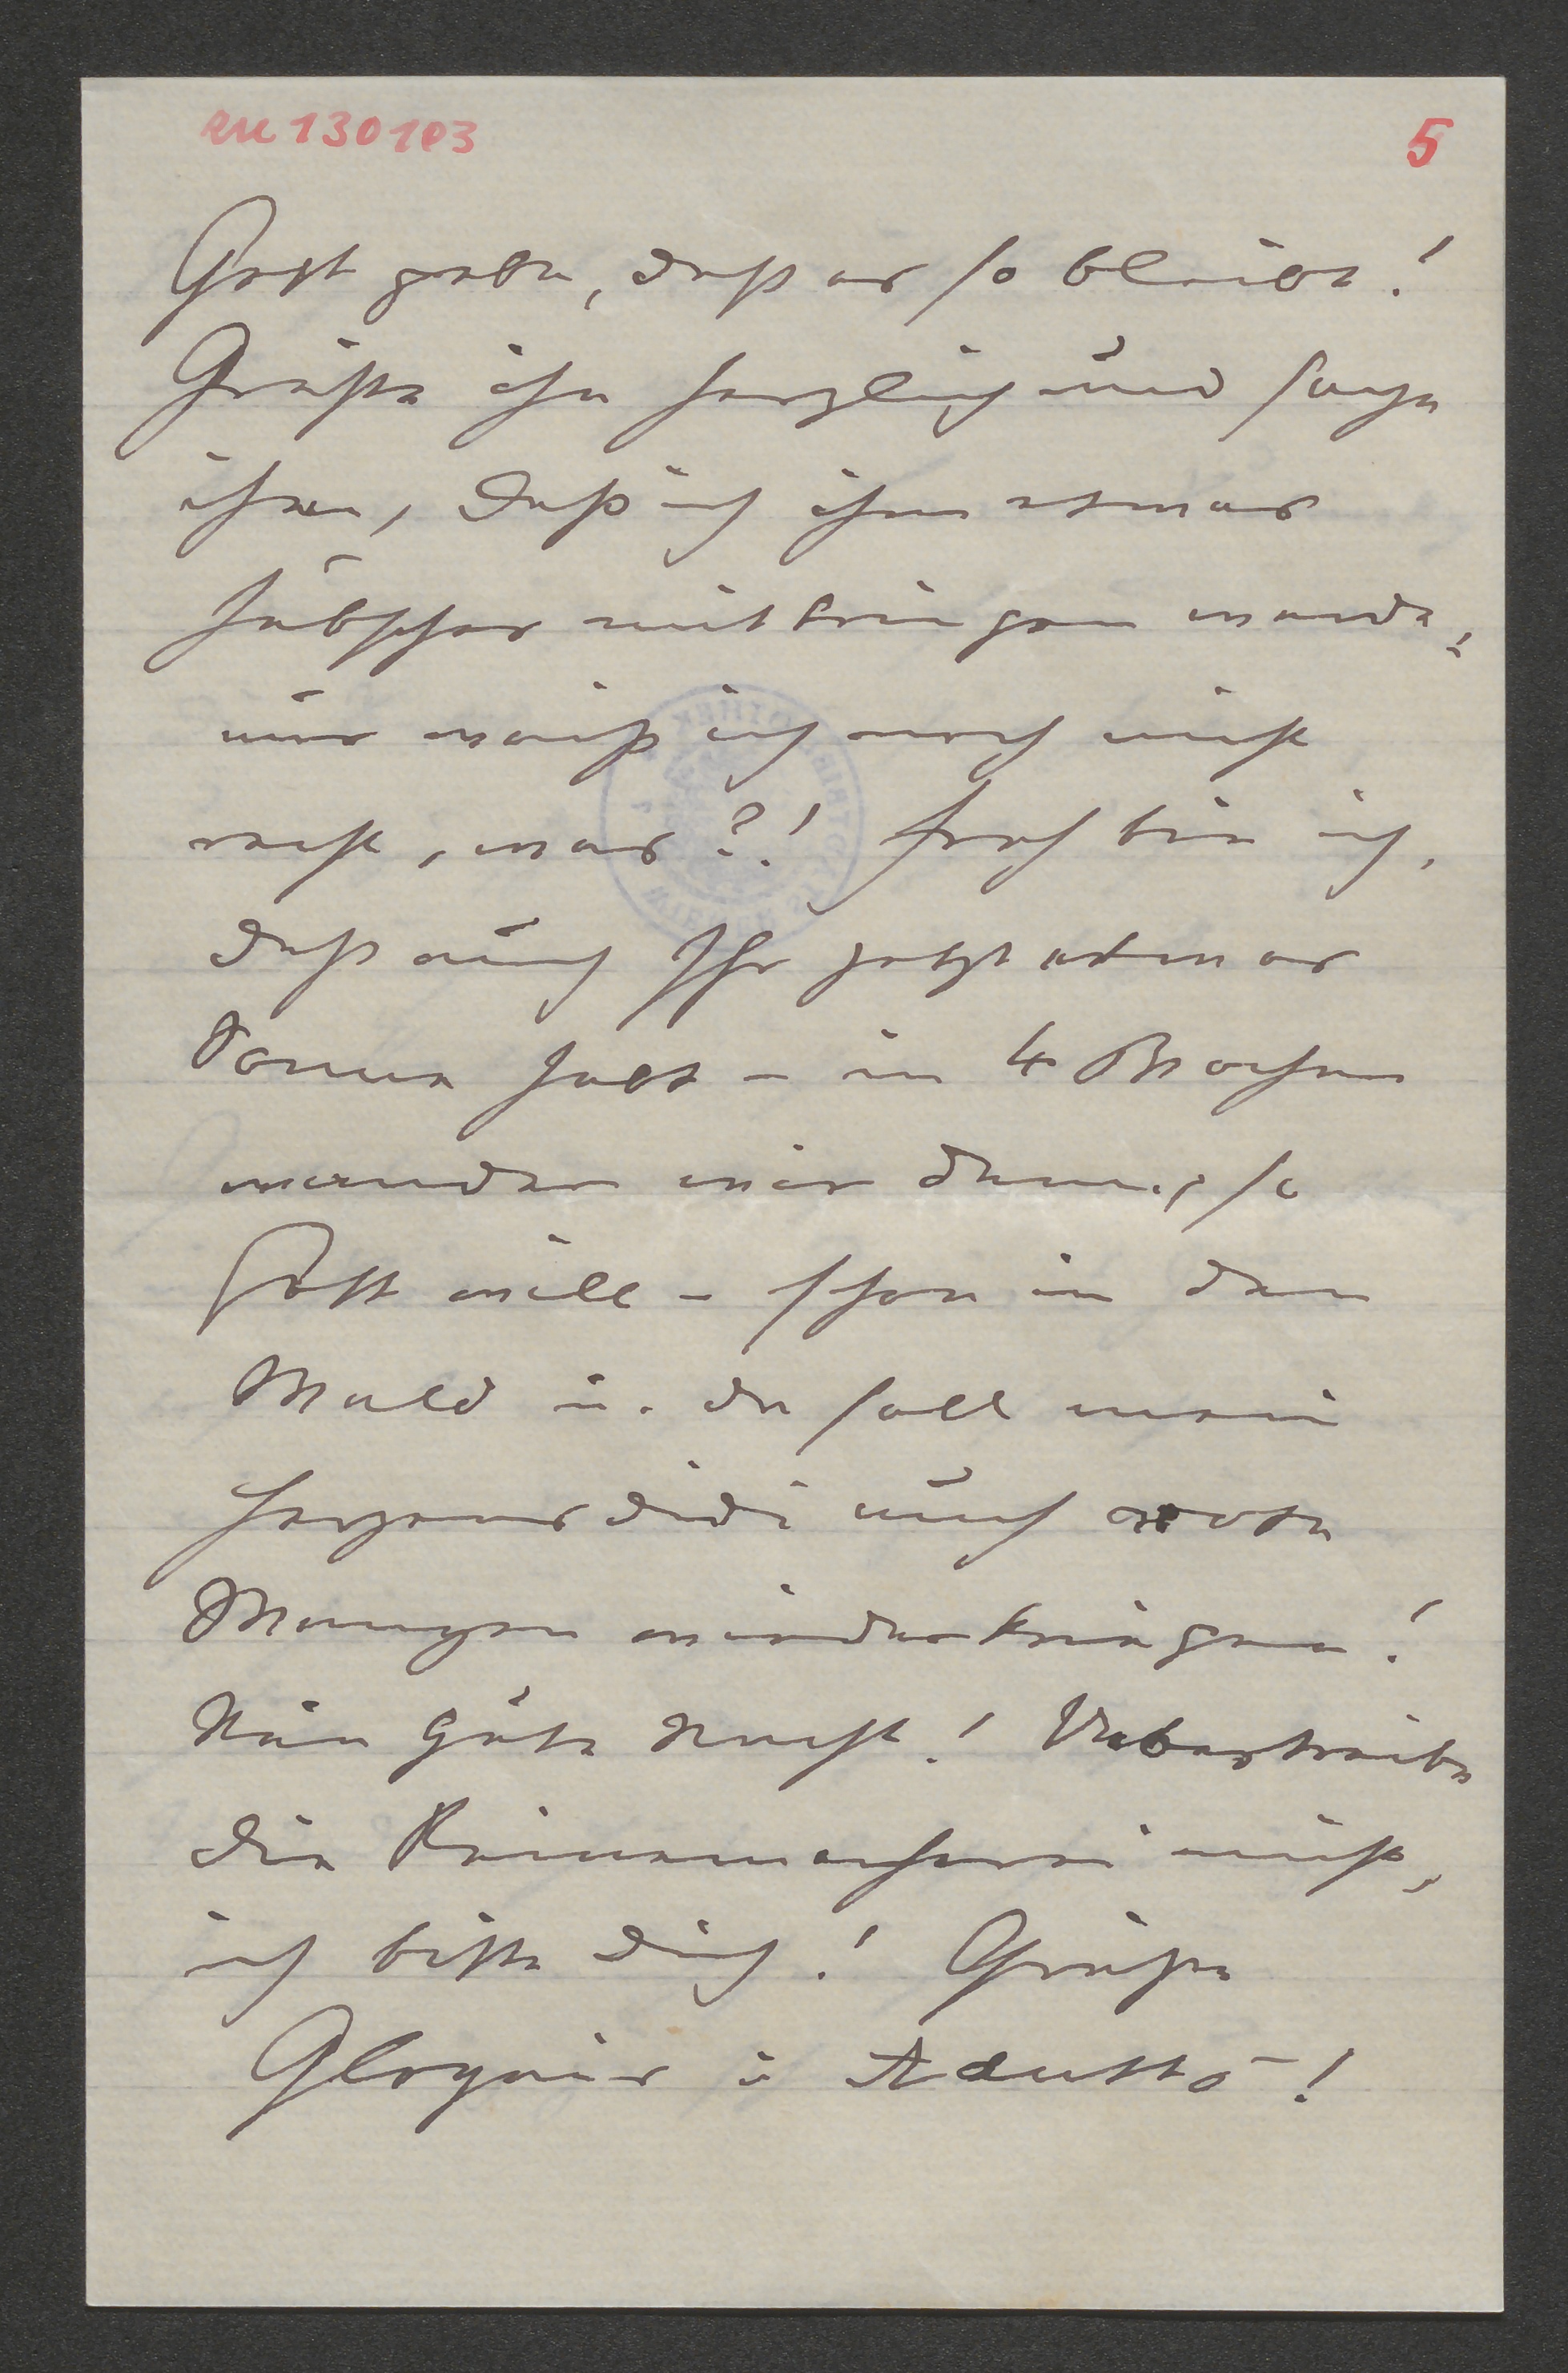 en 130103
5
Gott gebe, daß es so bleibt!
Grüße ihn herzlich und sage
ihm, daß ich ihm etwas
Hübsches mitbringen werde,
nur weiß ich noch nicht
recht, was?! Froh bin ich,
daß auch Ihr jetzt etwas
Sonne habt – in 4 Wochen
wandern wir dann, so
Gott will – schon in den
Wald u. da soll mein
Herzensdidi auch rote
Wangen wiederkriegen!
Nun gute Nacht! Uebertreibe
die Reinemacherei nicht,
ich bitte dich! Grüße
u